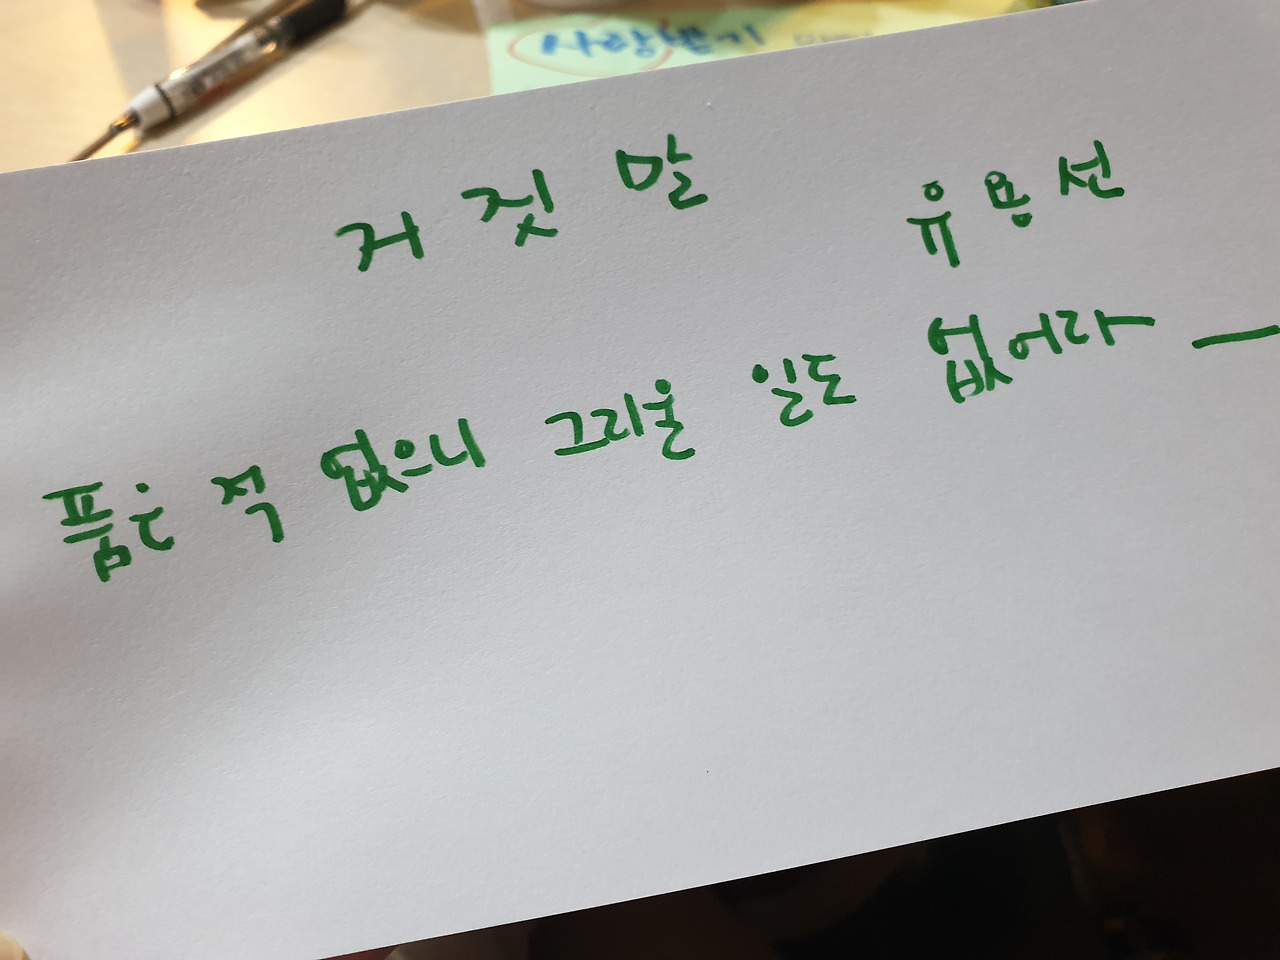 사랑받기
거짓말
유용선
품은 적 없으니 그리울 일도 없어라 —